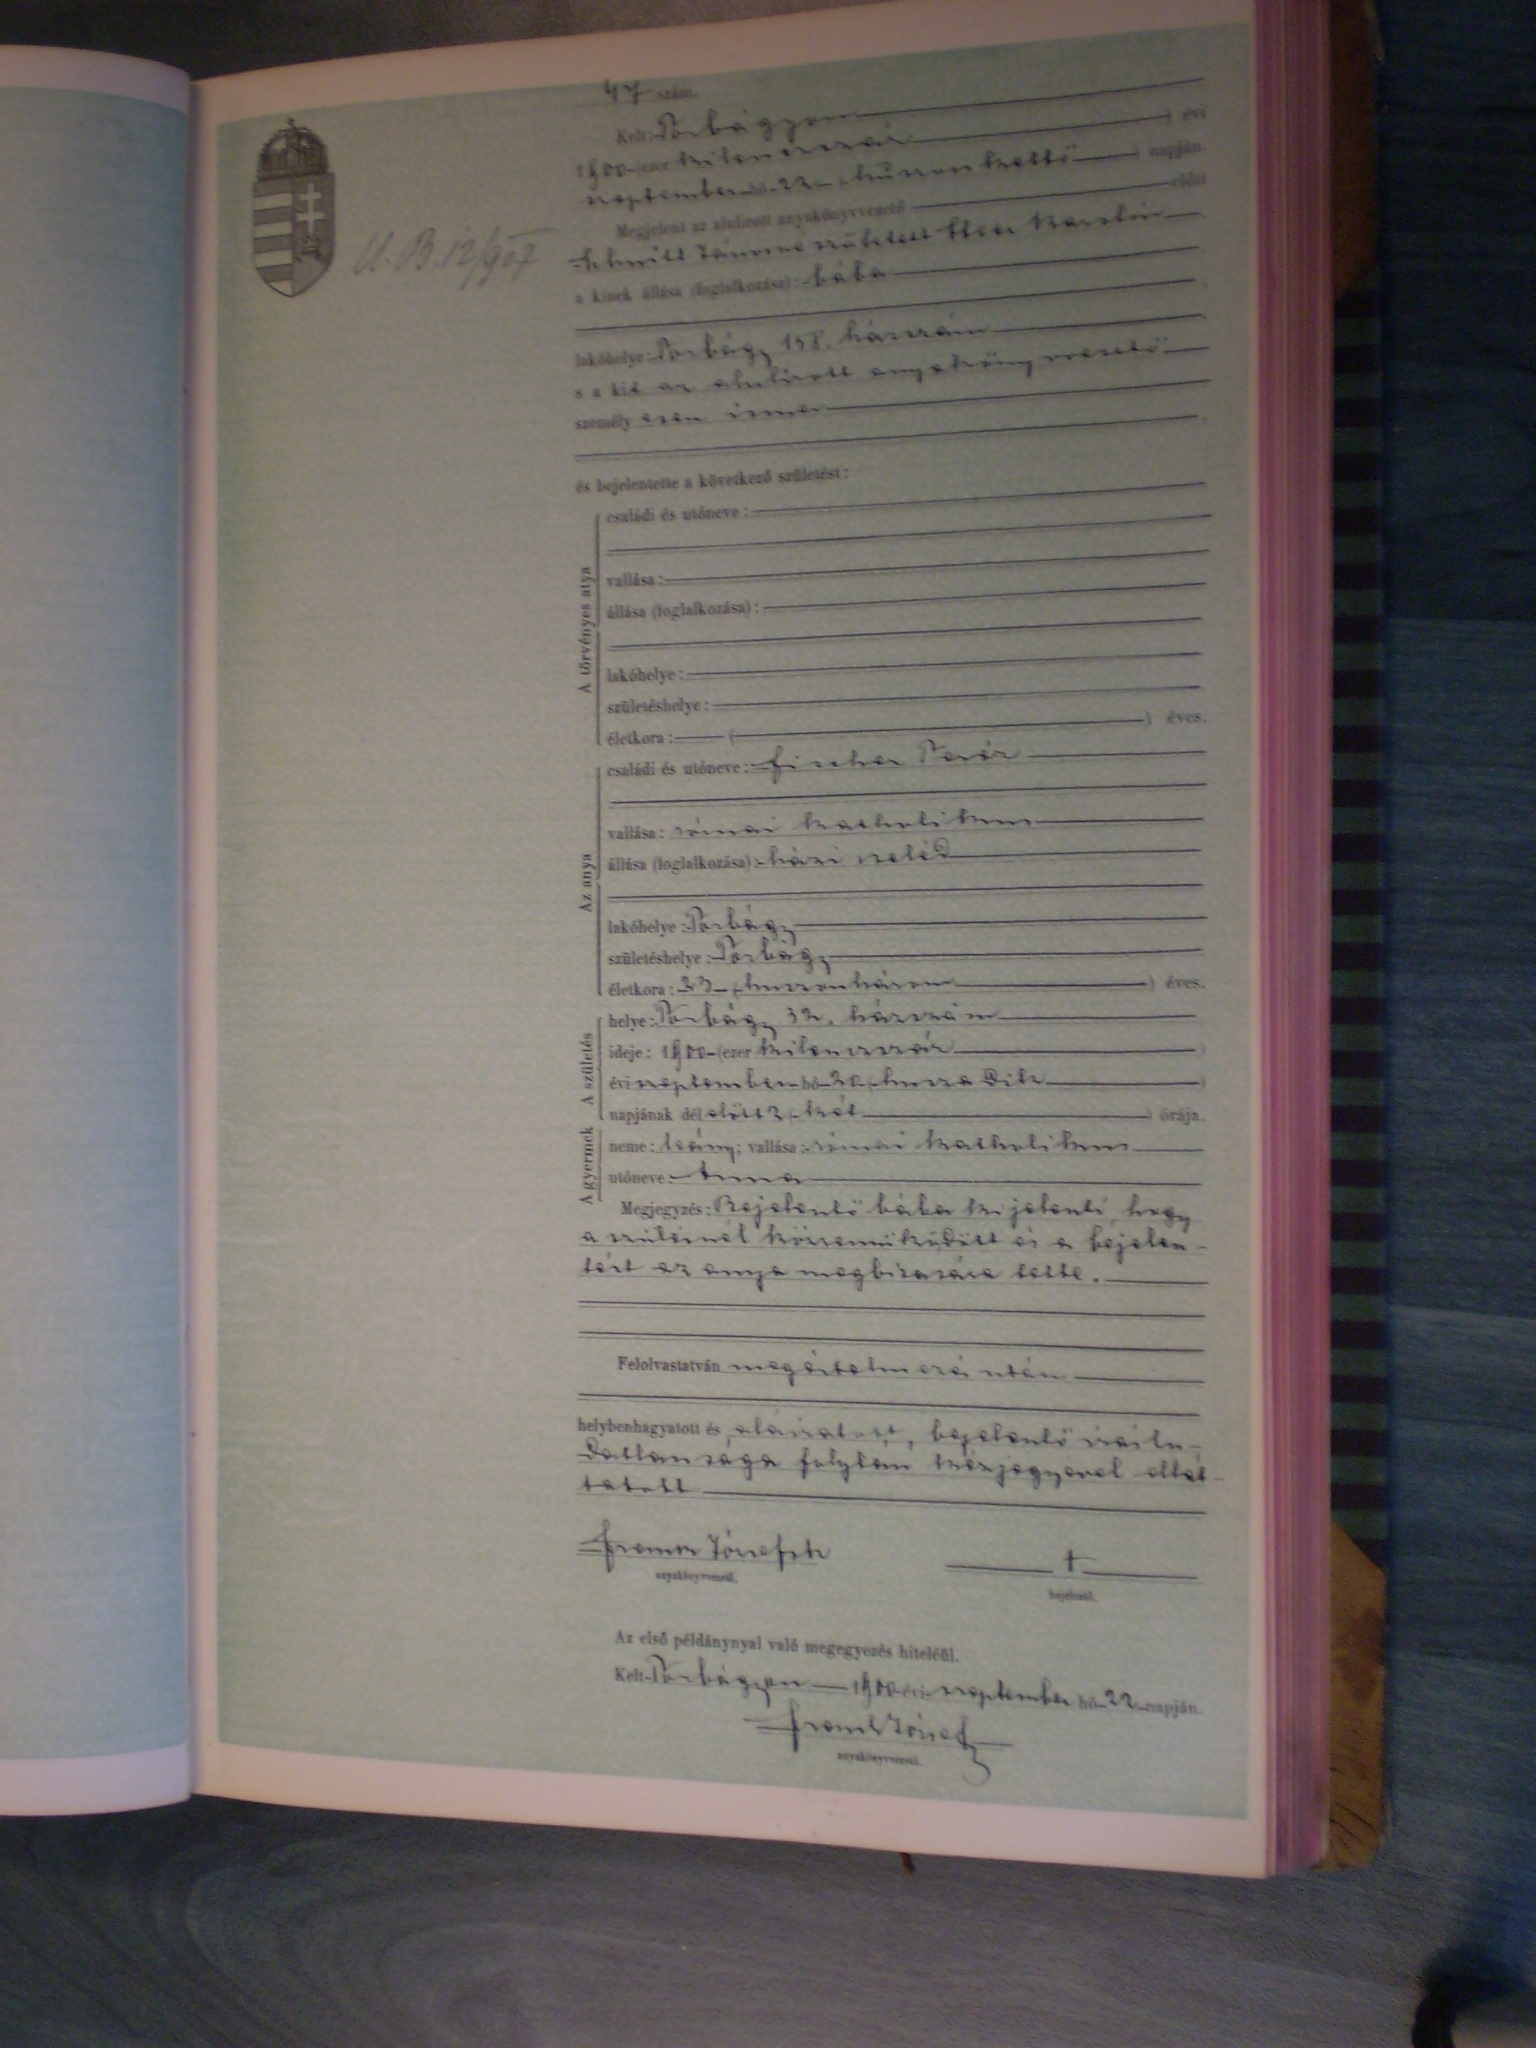 47 szám.
Kelt: Torbágyon
1900 (ezer kilenczszáz ) évi
szeptember hó 22 (húszonkettő ) napján.
Megjelent az alulirott anyakönyvvezető előtt
Schmitt Jánosné született Karolin
a kinek állása (foglalkozása): bába
lakóhelye: Torbágy 158. házszám
s a kit az alulirott anyakönyvvezető
személyesen ismer
és bejelentette a következő születést:
A törvényes atya
családi és utóneve:
vallása:
állása (foglalkozása):
lakóhelye:
születéshelye:
életkora: ( ) éves.
Az anya
családi és utóneve: Fischer Teréz
vallása: római katholikus
állása (foglalkozása): házi cseléd
lakóhelye: Torbágy
születéshelye: Torbágy
életkora: 23 (huszonhárom ) éves.
A születés
helye: Torbágy 32. házszám
ideje: 1900 (ezer kilenczszáz )
évi szeptember hó 20 (huszadik )
napjának délelőtt 2 (két ) órája.
A gyermek
neme: leány; vallása: római katholikus
utóneve: Anna
Megjegyzés: Bejelentő bába kijelenti, hogy
a szülésnél közreműködött és a bejelen-
tést az anya megbizására tette.
Felolvastatván megértelmezés után
helybenhagyatott és aláiratott, bejelentő irástu-
datlansága folytán kézjegyével ellát-
tatott
József
anyakönyvvezető.
+
bejelentő.
Az első példánynyal való megegyezés hiteléül.
Kelt Torbágyon 1900 évi szeptember hó 22 napján.
József
anyakönyvvezető.
U. B. 12/907